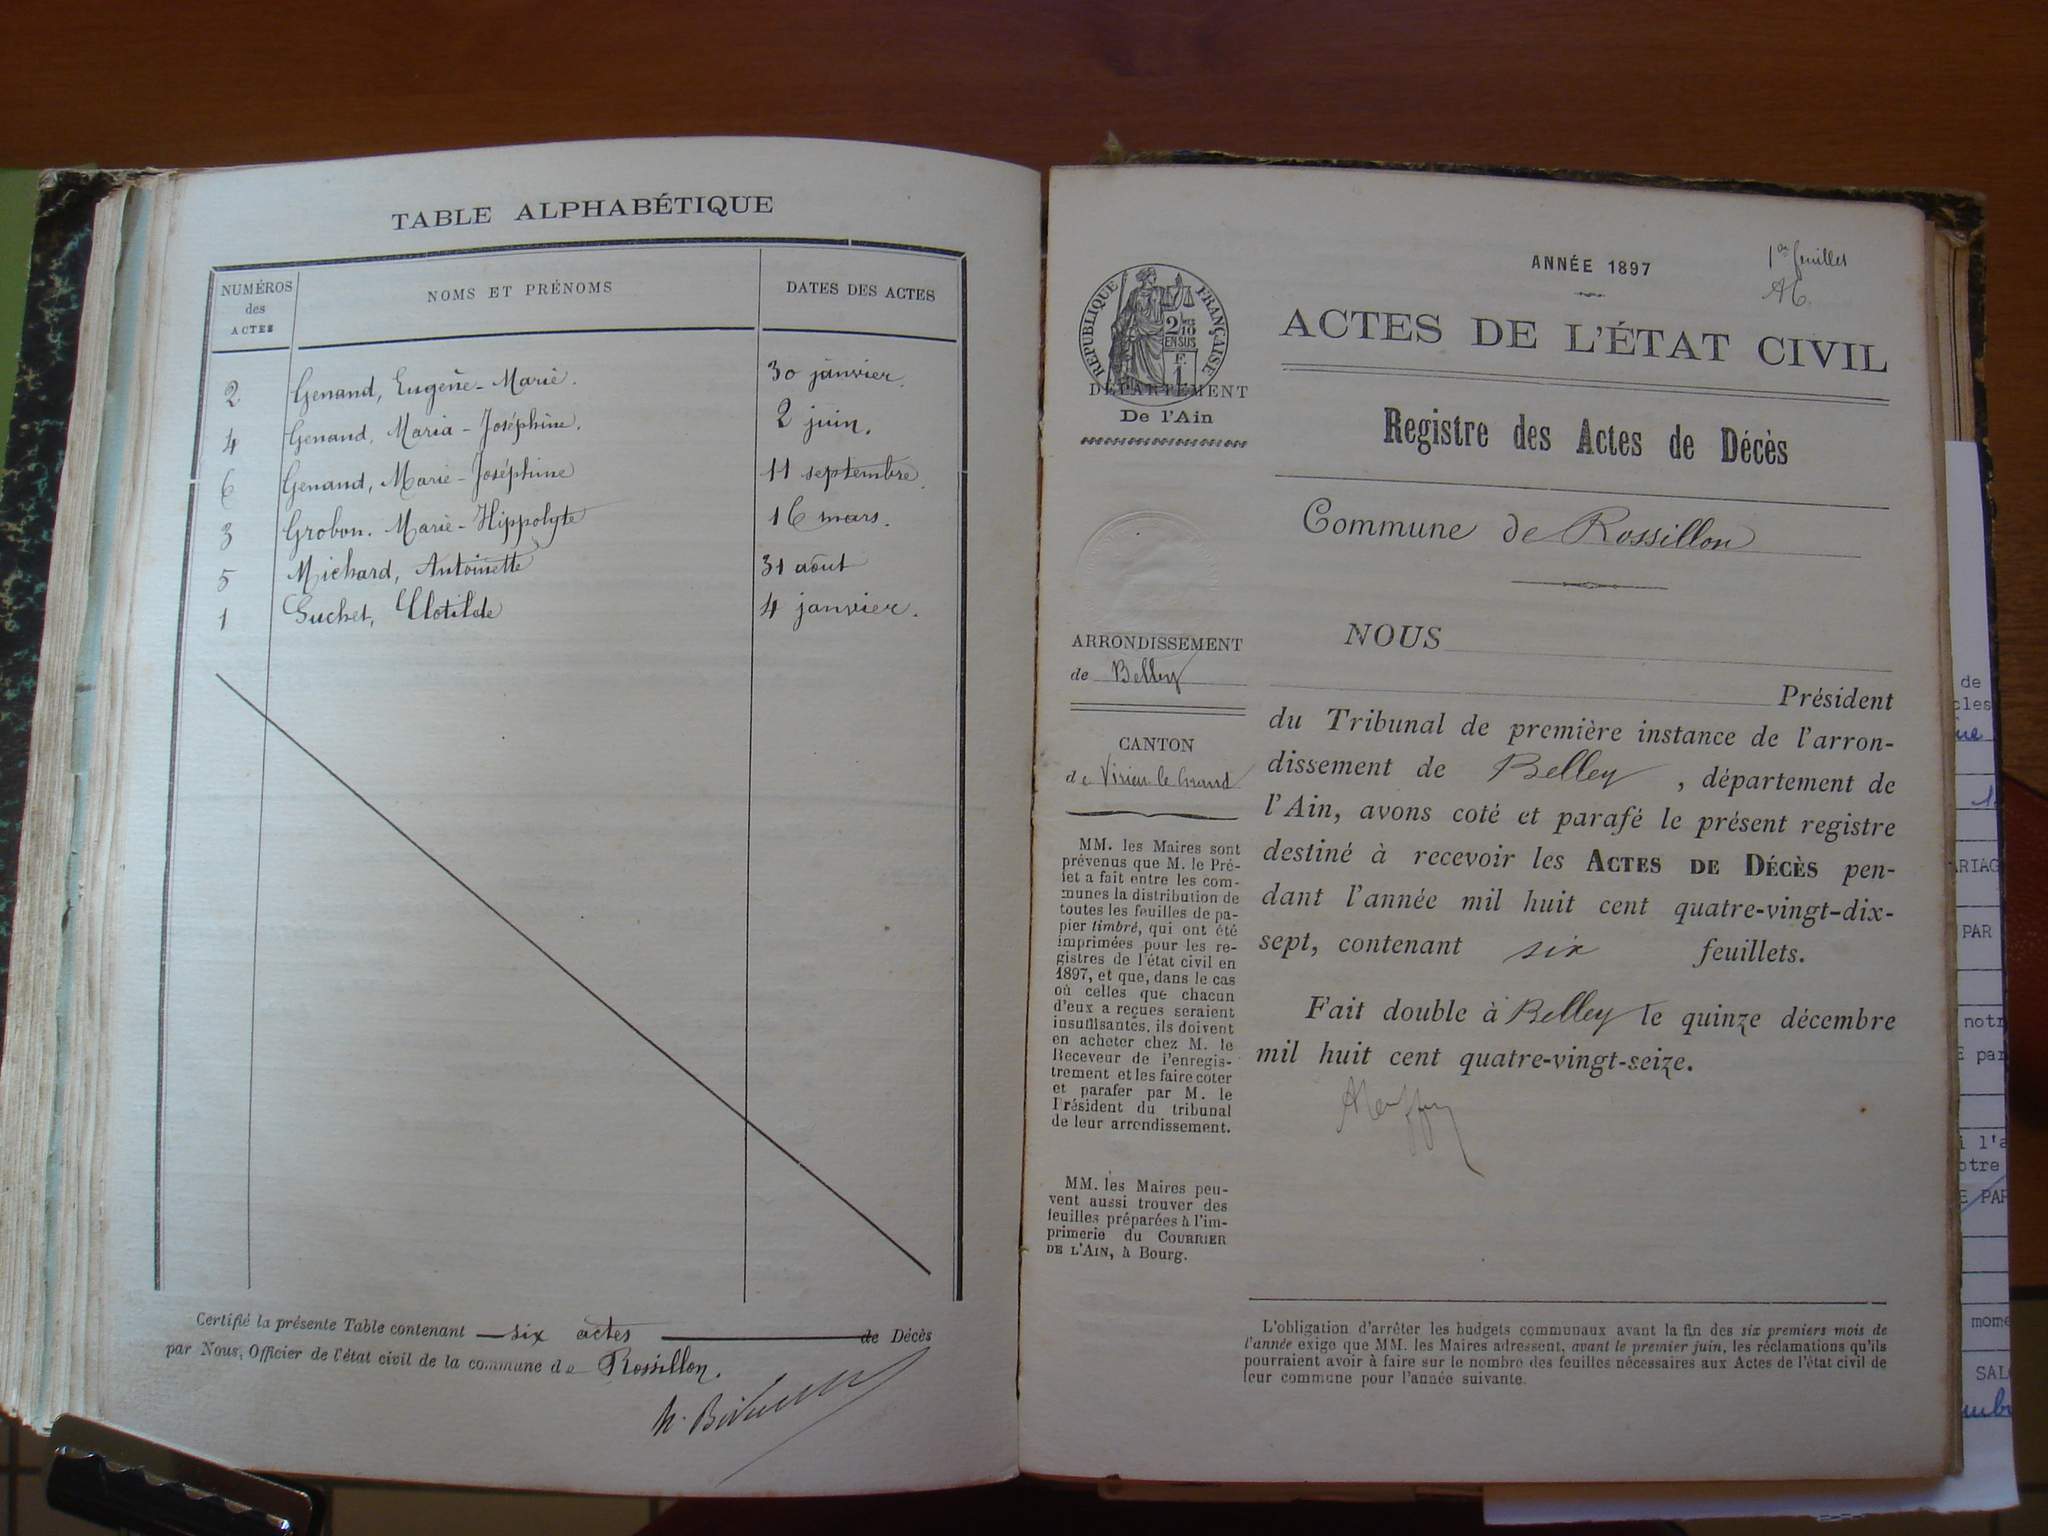 TABLE ALPHABÉTIQUE
NUMÉROS des ACTES
NOMS ET PRÉNOMS
DATES DES ACTES
2 Genand, Eugène-Marie. 30 janvier.
4 Genand, Maria-Joséphine. 2 juin.
6 Genand, Marie-Joséphine 11 septembre.
3 Grobon. Marie-Hippolyte 16 mars.
5 Michard, Antoinette 31 août
1 Suchet, Clotilde 4 janvier.
Certifié la présente Table contenant six actes de Décès
par Nous, Officier de l'état civil de la commune de Rossillon.
ANNÉE 1897
1er feuillet
ACTES DE L'ÉTAT CIVIL
Registre des Actes de Décès
Commune de Rossillon
NOUS
Président
du Tribunal de première instance de l'arron-
dissement de Belley, département de
l'Ain, avons coté et parafé le présent registre
destiné à recevoir les ACTES DE DÉCÈS pen-
dant l'année mil huit cent quatre-vingt-dix-
sept, contenant six feuillets.
Fait double à Belley le quinze décembre
mil huit cent quatre-vingt-seize.
L'obligation d'arrêter les budgets communaux avant la fin des six premiers mois de
l'année exige que MM. les Maires adressent, avant le premier juin, les réclamations qu'ils
pourraient avoir à faire sur le nombre des feuilles nécessaires aux Actes de l'état civil de
leur commune pour l'année suivante.
RÉPUBLIQUE FRANÇAISE
2/10
EN SUS
F
1
DÉPARTEMENT
De l'Ain
ARRONDISSEMENT
de Belley
CANTON
de Virieu le Grand
MM. les Maires sont
prévenus que M. le Pré-
fet a fait entre les com-
munes la distribution de
toutes les feuilles de pa-
pier timbré, qui ont été
imprimées pour les re-
gistres de l'état civil en
1897, et que, dans le cas
où celles que chacun
d'eux a reçues seraient
insuffisantes, ils doivent
en acheter chez M. le
Receveur de l'enregis-
trement et les faire coter
et parafer par M. le
Président du tribunal
de leur arrondissement.
MM. les Maires peu-
vent aussi trouver des
feuilles préparées à l'im-
primerie du COURRIER
DE L'AIN, à Bourg.
de
PAR